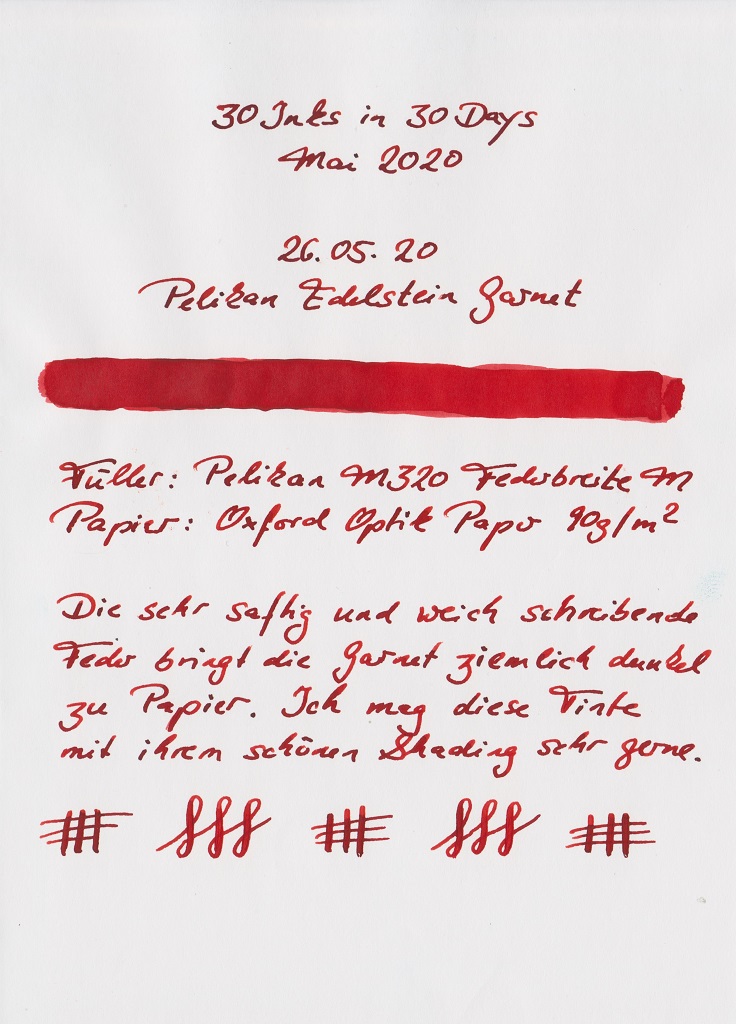 30 Inks in 30 Days
Mai 2020
26.05.20
Pelikan Edelstein Garnet
Füller: Pelikan M320 Federbreite M
Papier: Oxford Optik Paper 90g/m²
Die sehr saftig und weich schreibende
Feder bringt die Garnet ziemlich dunkel
zu Papier. Ich mag diese Tinte
mit ihrem schönen Shading sehr gerne.